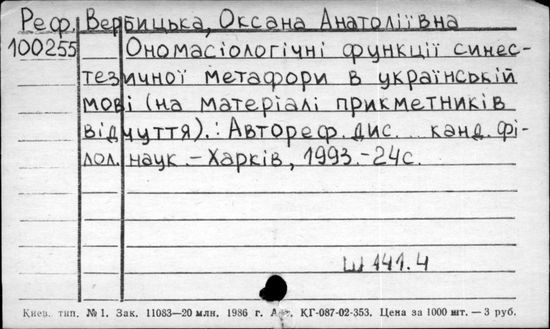 Реф. Вербицька, Оксана Анатоліївна
100255 Ономасіологічні функції синес-
тезичної метафори в українській
мові (на матеріалі прикметників
відчуття).: Автореф. дис. канд. фі-
лол. наук. – Харків, 1993. – 24 с.
Ш 141.4
Киев. тип. № 1. Зак. 11083—20 млн. 1986 г. КГ-087-02-353. Цена за 1000 шт. — 3 руб.